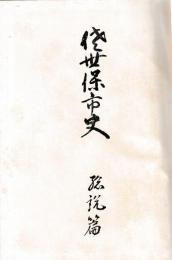 佐世保市史
總説篇